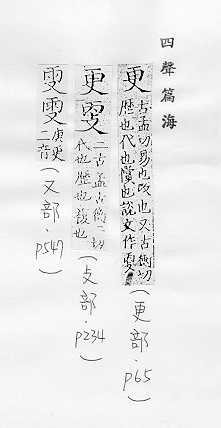 四聲篇海
更 古孟切易也改也又古衡切
歷也代也償也說文作
(更部.p65)
更 二古孟古衡二切
代也歷也復也
(攴部.p234)
庚更
二音
(又部.p547)